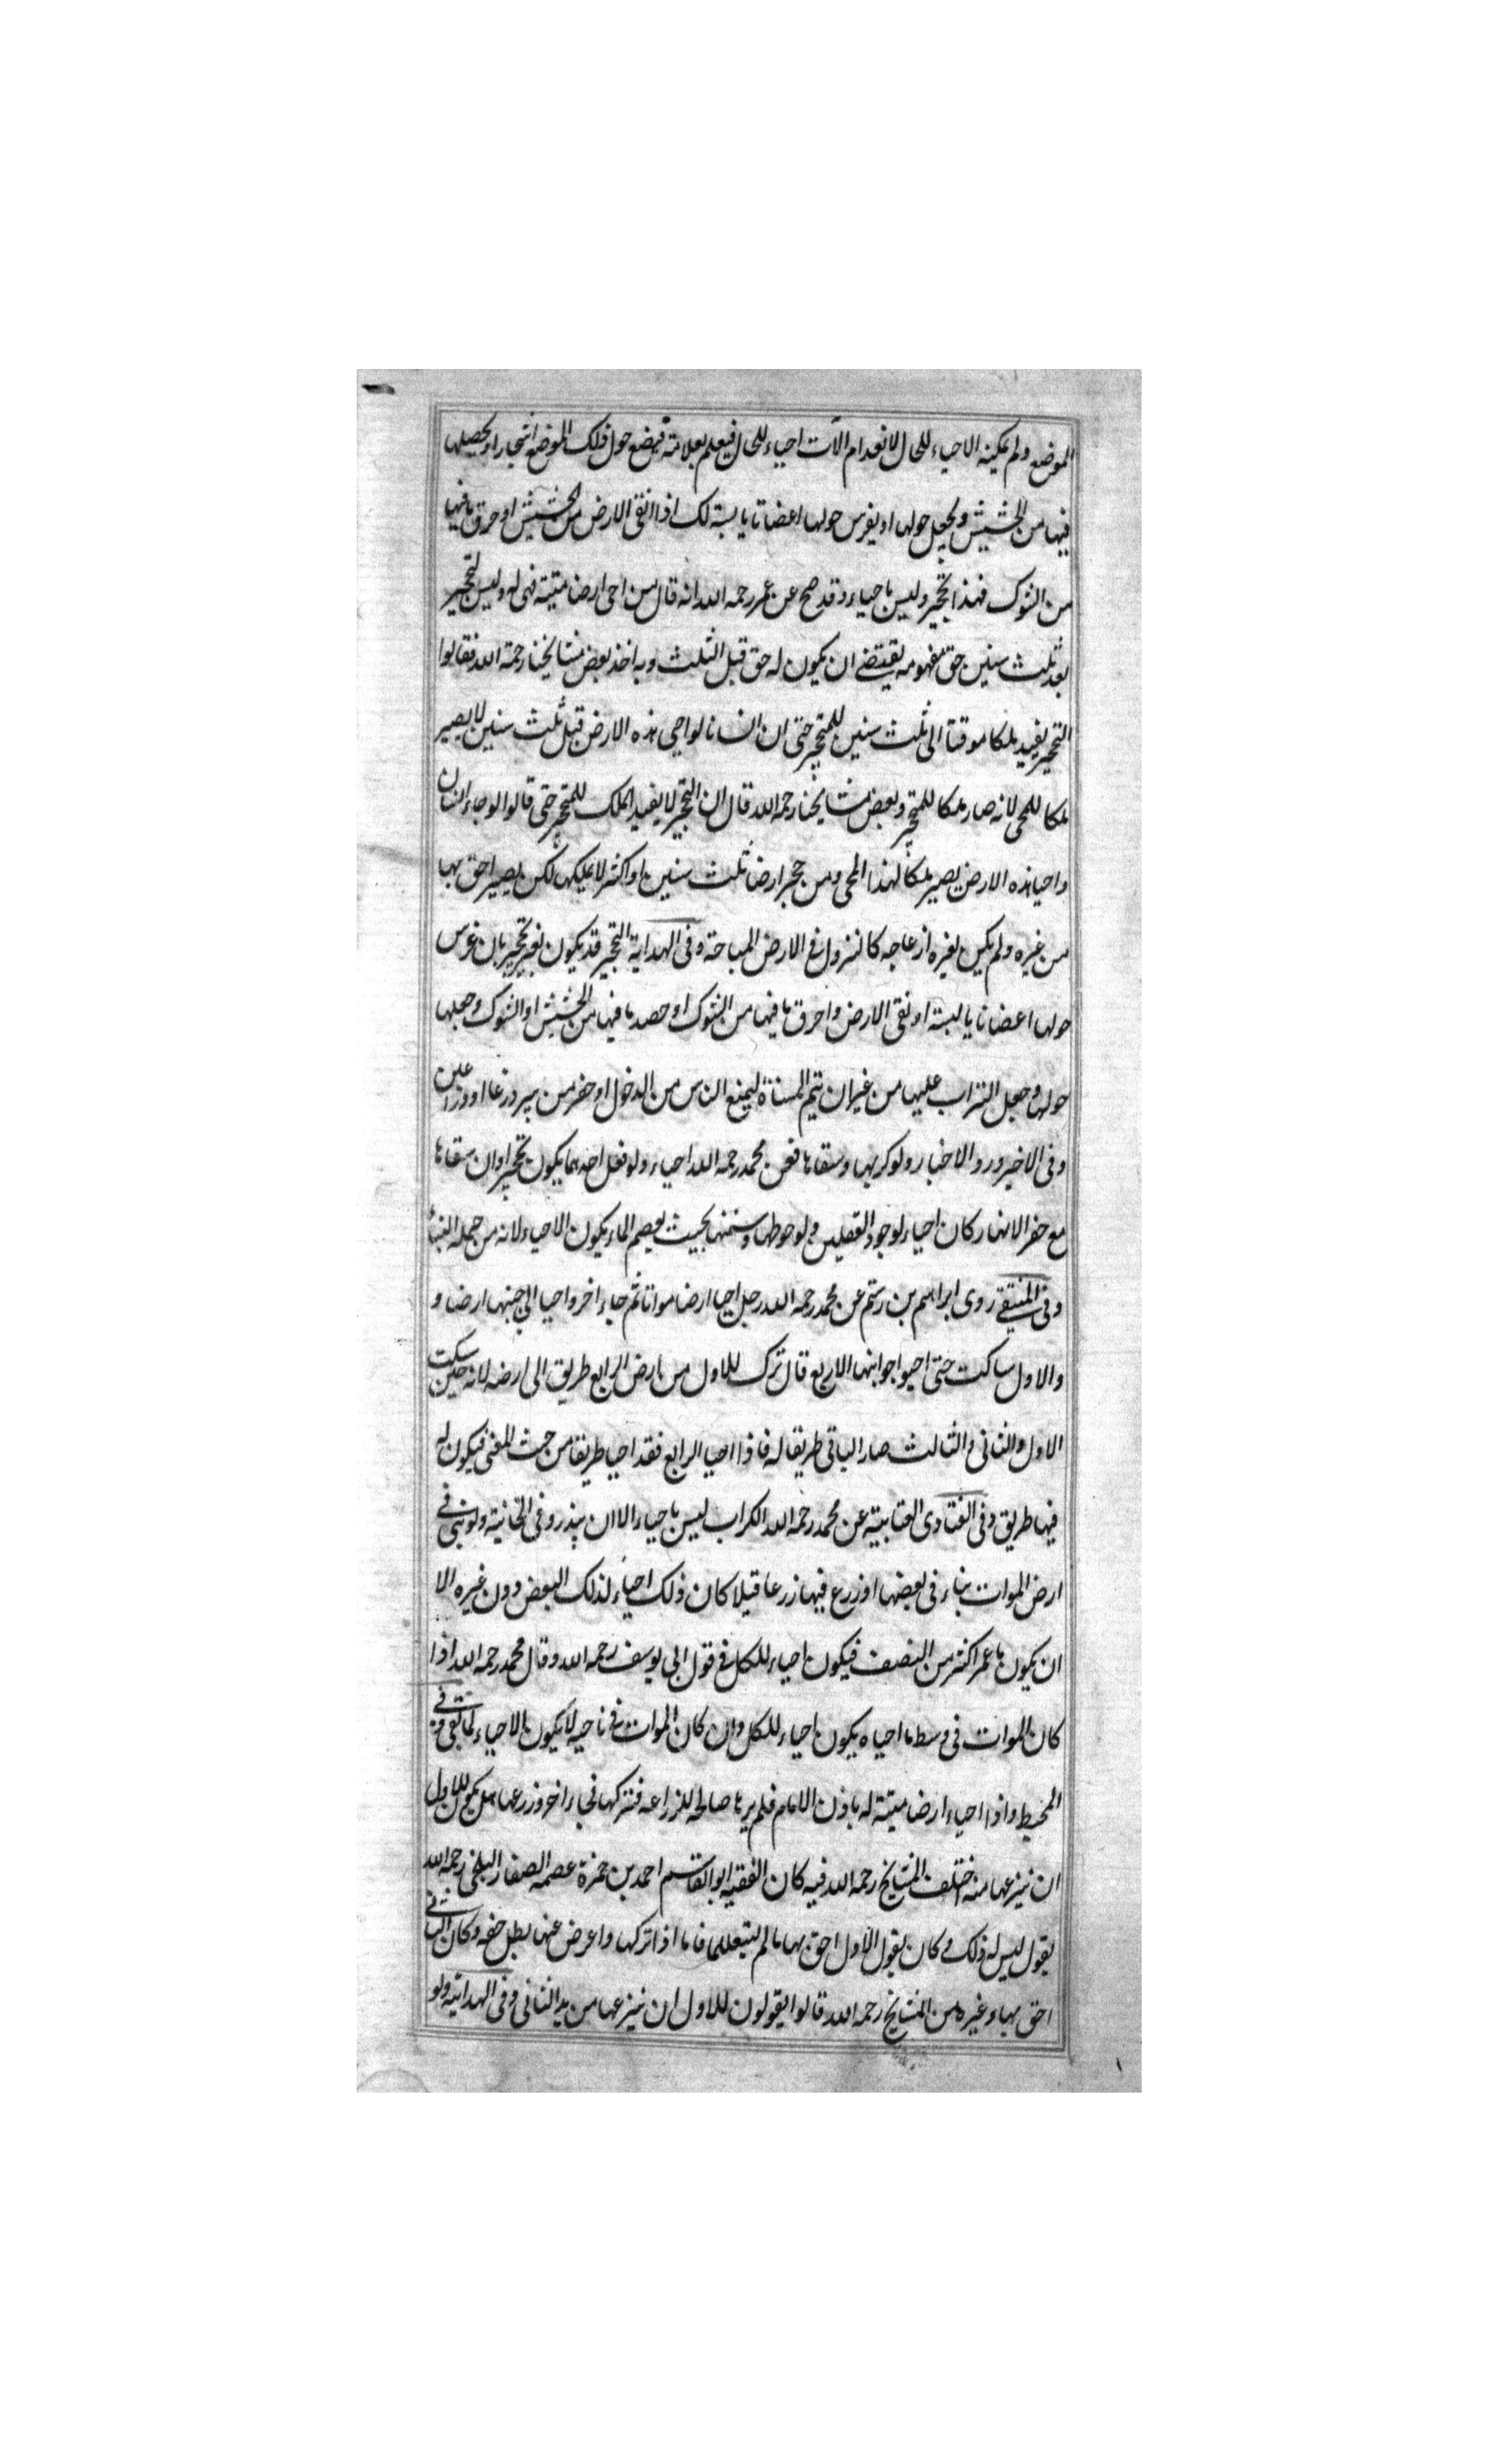 الموضع ولم يمكنه الاحياء للحال لانعدام الآت احياء للحال فيعلم بعلامة فيضع حول ذلك الموضع اشجارا و يحصلها
فيها من الحشيش ويجعل حولها او يغرس حولها اعضانا يابسة لك اذا انقى الارض من الحشيش او حرق ما فيها
من الشوك فهذا تحجير وليس باحياء وقد صح عن عمر رحمه الله انه قال من احى ارضا ميتة فهى له وليس لتحجير
بعد ثلث سنين حق مفهومه يقتضے ان يكون له حق قبل الثلث وبه اخذ بعض مشايخنا رحمة الله فقالوا
التحجير يفيد ملكا موقتا الى ثلث سنين للمتحجر حتى ان انسانا لو احى هذه الارض قبل ثلث سنين لا يصير
ملكا للمحى لانه صار ملكا للمتحجر وبعض مشايخنا رحمه الله قال ان التحجير لا يفيد الملك للمتحجر حتى قالوا لو جاء انسان
واحيا هذه الارض يصير ملكا لهذا المحى ومن حجر ارضا ثلث سنين او اكثر لا يملكها لكن يصير احق بها
من غيره ولم يكن لغيره ازعاجه كالنزول فى الارض المباحة وفى الهداية التحجير قد يكون بغير تحجير بان غرس
حولها اعضانا يابسة او نقى الارض واحرق ما فيها من الشوك او حصد ما فيها من الحشيش او الشوك وجعلها
حولها وجعل التراب عليها من غير ان يتم المسناة ليمنع الناس من الدخول او حفر من بير ذرعا او ذراعين
وفى الاخير ورد الاخبار ولو كربها وسقاها فعن محمد رحمه الله احياء ولو فعل احدهما يكون تحجيرا وان سقاها
مع حفر الانهار كان احياء لوجود الفعلين ولو حوطها وسنمها بحيث يعصم الماء يكون الاحياء لانه من جملة البناء
وفى المنتقے روى ابراهيم بن رستم عن محمد رحمه الله رجل احيا ارضا مواتا ثم جاء اخر واحيا الى جنبها ارضا و
والاول ساكت حتى احيوا جوانبها الاربع قال ترك للاول من ارض الرابع طريق الى ارضه لانه حين سكت
الاول والثانى والثالث صار الباقى طريقا له فاذا احيا الرابع فقد احيا طريقا من حيث المعنى فيكون له
فيها طريق وفى الفتاوى العتابية عن محمد رحمه الله الكراب ليس باحياء الا ان يبذر وفى الخانية ولو بنى فى
ارض الموات بناء فى بعضها او زرع فيها زرعا قيلا كان ذلك احياء لذلك البعض دون غيره الا
ان يكون ما عمر اكثر من النصف فيكون احياء للكل فى قول ابى يوسف رحمه الله وقال محمد رحمه الله اذا
كان الموات فى وسط ما احياه يكون احياء للكل وان كان الموات فى ناحية لا يكون الاحياء لما بقى وفى
المحيط واذا احياء ارضا ميتة له باذن الامام فلم يرها صالحا للزراعة فتركها فجاء اخر وزرعها هل يكون للاول
ان ينزعها منه اختلف المشايخ رحمه الله فيه كان الفقيه ابو القاسم احمد بن حمزة عصمه الصفار البلخى رحمه الله
يقول ليس له ذلك وكان يقول الاول احق بها ما لم فاما اذا تركها واعرض عنها بطل حقه وكان الثانى
احق بها وغيره من المشايخ رحمه الله قالوا يقولون للاول ان ينزعها من يد الثانى وفى الهداية ولو